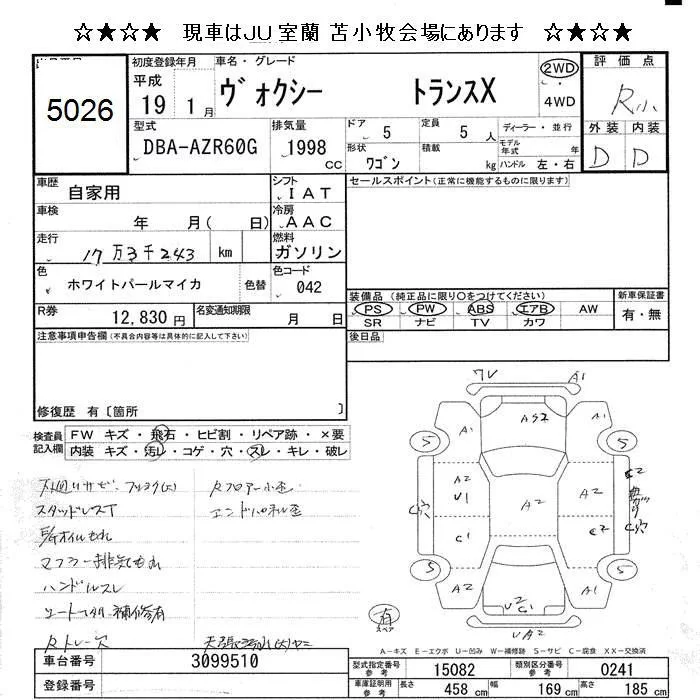 ☆★☆★ 現車はJU 室蘭 苫小牧会場にあります ☆★☆★
5026
初度登録年月
平成
19 1月
車名・グレード
ヴォクシー トランスX
2WD
4WD
評価点
R小
外装 内装
D D
型式
DBA-AZR60G
排気量
1998 CC
ドア 5
定員 5 人
形状 ワゴン
積載 kg
ディーラー・並行
モデル年式 年
ハンドル 左・右
車歴 自家用
シフト IAT
セールスポイント(正常に機能するものに限ります)
車検 年 月( 日)
冷房 AAC
走行 17万3千243 km
燃料 ガソリン
色 ホワイトパールマイカ 色替
色コード 042
R券 12,830 円
名変通知期限 月 日
装備品 (純正品に限り○をつけてください)
新車保証書
PS PW ABS エアB AW
有・無
SR ナビ TV カワ
注意事項申告欄(不具合内容等は具体的に記入して下さい)
後日品
修復歴 有〔箇所 〕
検査員記入欄
FW キズ・飛石・ヒビ割・リペア跡・×要
内装 キズ・汚レ・コゲ・穴・スレ・キレ・破レ
下廻りサビ・
Rフロアー小歪
スタッドレスT
エンドパネル歪
オイルもれ
マフラー排気もれ
ハンドルスレ
シートスレ 補修有
7V A1
AS2
A1 A1
5 5
A2
U1
A2
A2
C2
C穴
C1
C2
C穴
A2 A1
5 5
U2
C1
UA2
有
スペア
A－キズ E－エクボ U－凹み W－補修跡 S－サビ C－腐食 XX－交換済
車台番号 3099510
登録番号
型式指定番号参考 15082
類別区分番号参考 0241
車庫証明用参考 長さ 458 cm 幅 169 cm 高さ 185 cm